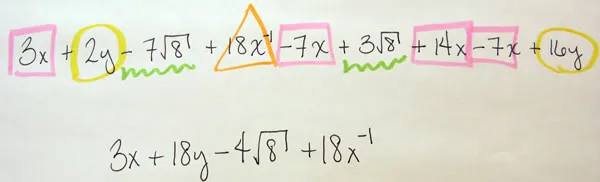 3x + 2y - 7√8 + 18x⁻¹ - 7x + 3√8 + 14x - 7x + 16y
3x + 18y - 4√8 + 18x⁻¹